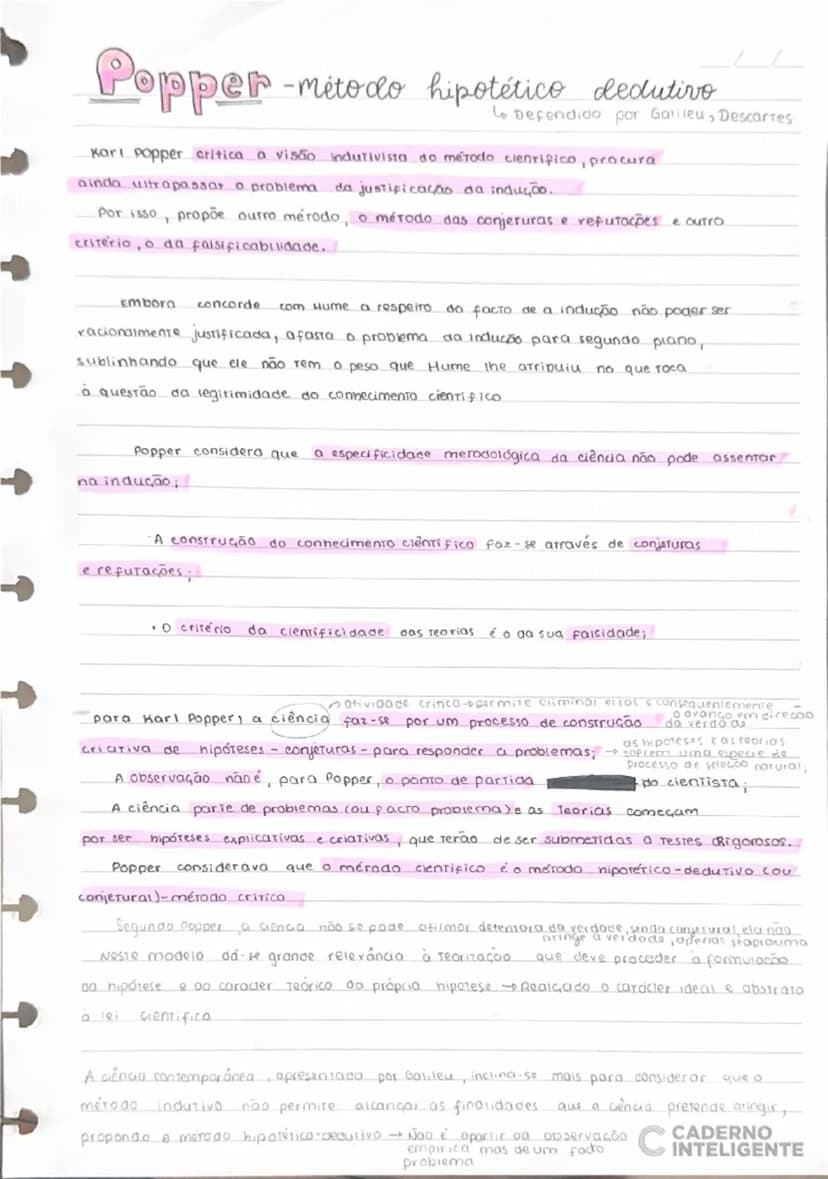 Popper - método hipotético dedutivo
__/__/__
↳ Defendido por Galileu, Descartes
Karl Popper critica a visão indutivista do método científico, procura
ainda ultrapassar o problema da justificação da indução.
Por isso, propõe outro método, o método das conjeturas e refutações e outro
critério, o da falsificabilidade.
Embora concorde com Hume a respeito do facto de a indução não poder ser
racionalmente justificada, afasta o problema da indução para segundo plano,
sublinhando que ele não tem o peso que Hume lhe atribuiu no que toca
à questão da legitimidade do conhecimento científico
Popper considera que a especificidade metodológica da ciência não pode assentar
na indução;
· A construção do conhecimento científico faz-se através de conjeturas
e refutações;
• O critério da cientificidade das teorias é o da sua falsidade;
→ atividade crítica → permite eliminar erros e consequentemente
o avanço em direção
da verdade
para Karl Popper, a ciência faz-se por um processo de construção
criativa de hipóteses - conjeturas - para responder a problemas;
→ as hipóteses e as teorias
sofrem uma espécie de
processo de seleção natural;
A observação não é, para Popper, o ponto de partida do cientista;
A ciência parte de problemas (ou facto problema) e as teorias começam
por ser hipóteses explicativas e criativas, que terão de ser submetidas a testes rigorosos.
Popper considerava que o método científico é o método hipotético-dedutivo (ou
conjetural) - método crítico
Segundo Popper, a ciência não se pode afirmar detentora da verdade, sendo conjetural, ela não
atinge a verdade, apenas se aproxima
Neste modelo dá-se grande relevância à teorização que deve proceder à formulação
da hipótese e ao caracter teórico da própria hipotese → Realçado o carácter ideal e abstrato
à lei científica
A ciência contemporânea, apresentada por Galileu, inclina-se mais para considerar que o
método indutivo não permite alcançar as finalidades que a ciência pretende atingir,
propondo o método hipotético-dedutivo → Não é apartir da observação
empírica mas de um facto
problema
CADERNO
INTELIGENTE